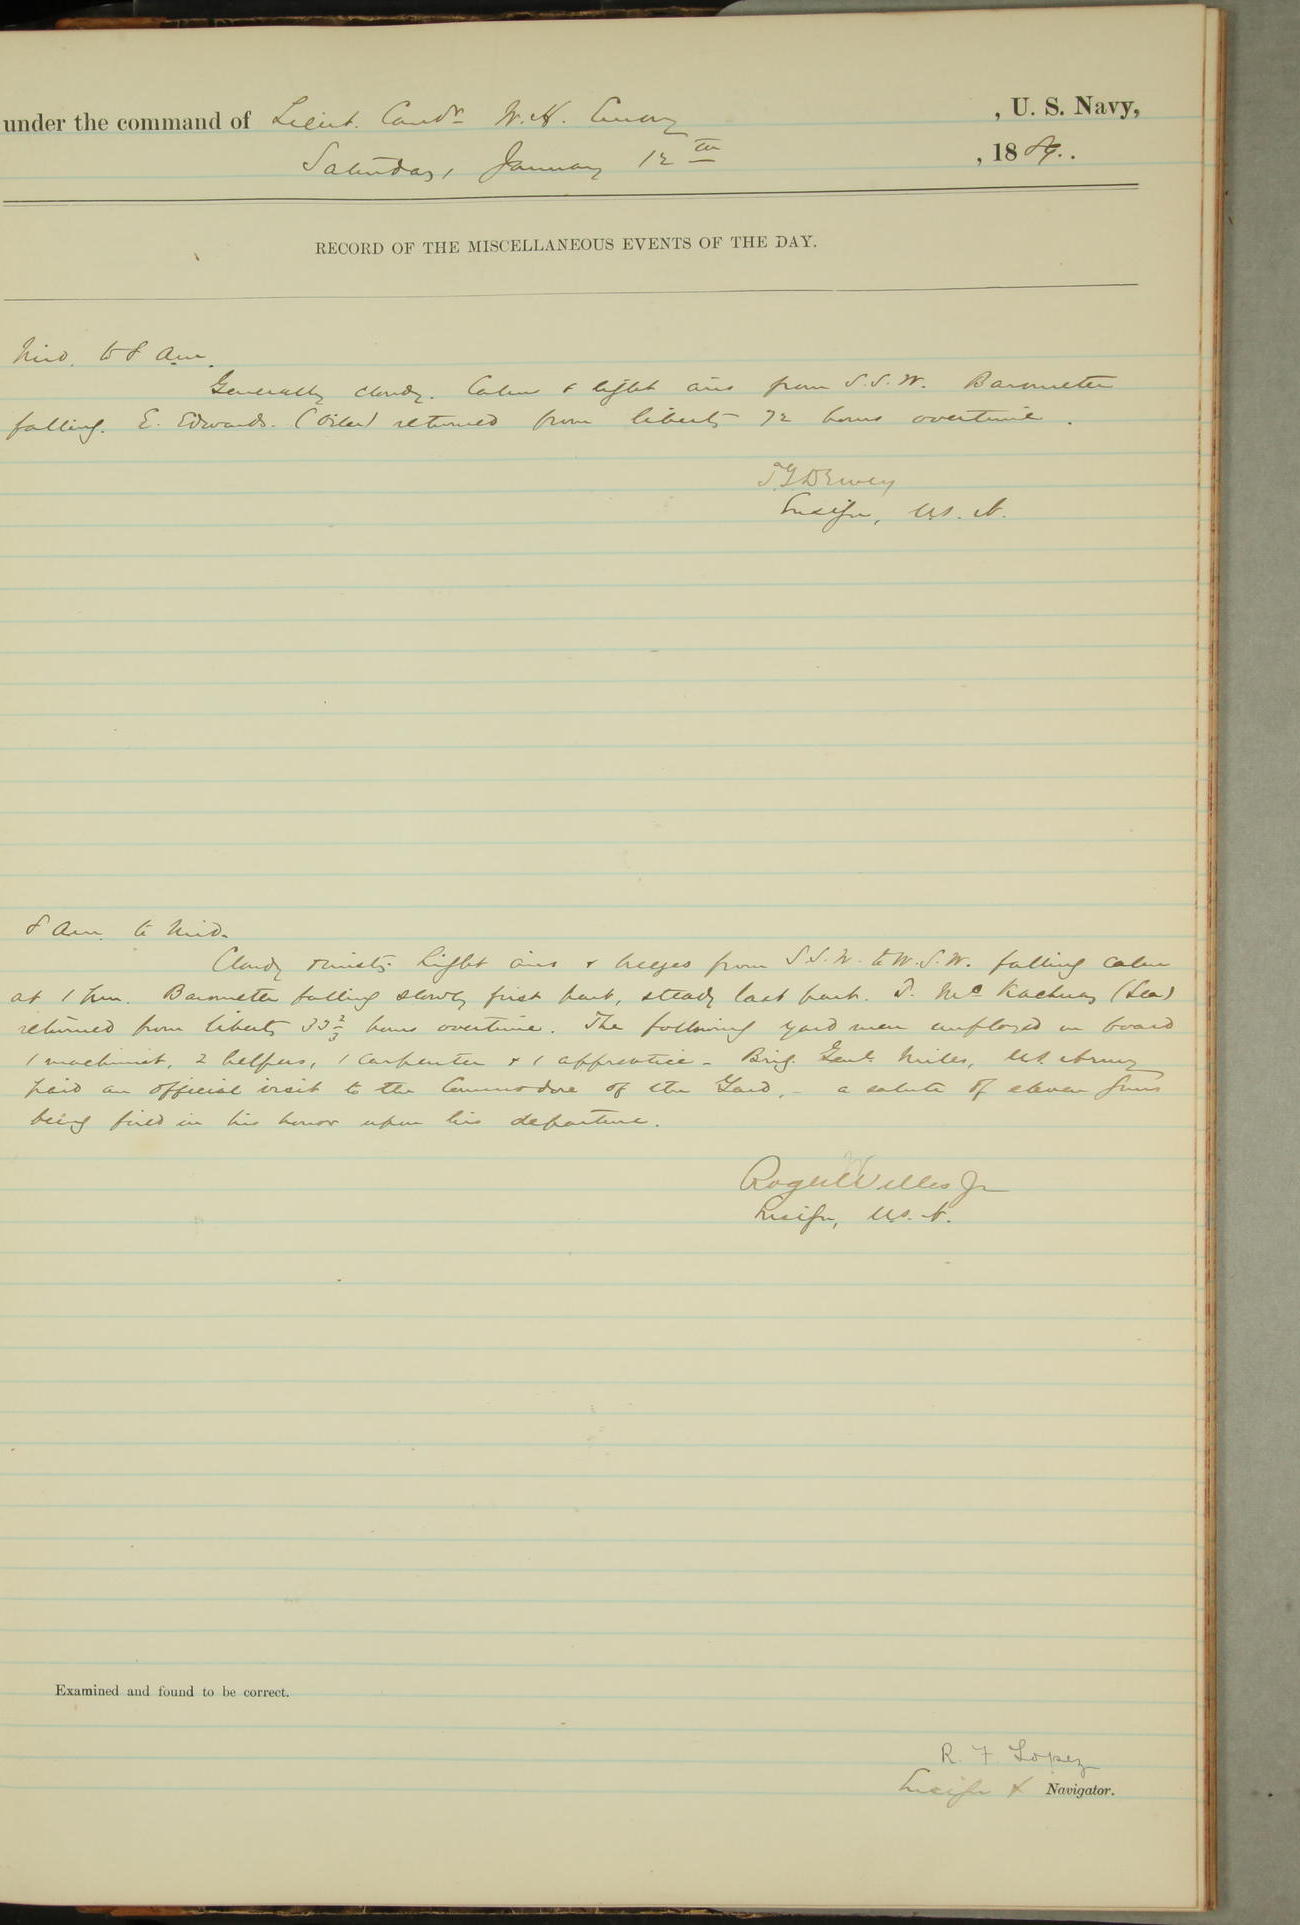 under the command of Lieut. Comdr W. H. Emory , U. S. Navy,
Saturday, January 12th , 1889.
RECORD OF THE MISCELLANEOUS EVENTS OF THE DAY.
Mid. to 8 Am.
Generally cloudy. Calm & light airs from S.S.W. Barometer
falling. E. Edwards. (Oiler) returned from liberty 72 hours overtime.
T G Dewey
Ensign, U.S.N.
8 Am. to Mid.
Cloudy & misty. Light airs & breezes from S.S.W. to W.S.W. falling calm
at 1 Barometer falling slowly first part, steady last part. (Sea)
returned from liberty 33 2/3 hours overtime. The following yard men employed on board
1 machinist, 2 helpers, 1 carpenter & 1 apprentice - Brig. Genl. Miles, U.S. Army
paid an official visit to the Commodore of the Yard, - a salute of eleven guns
being fired in his honor upon his departure.
Roger Welles Jr
Ensign, U.S.N.
Examined and found to be correct.
R. F. Lopez
Ensign & Navigator.